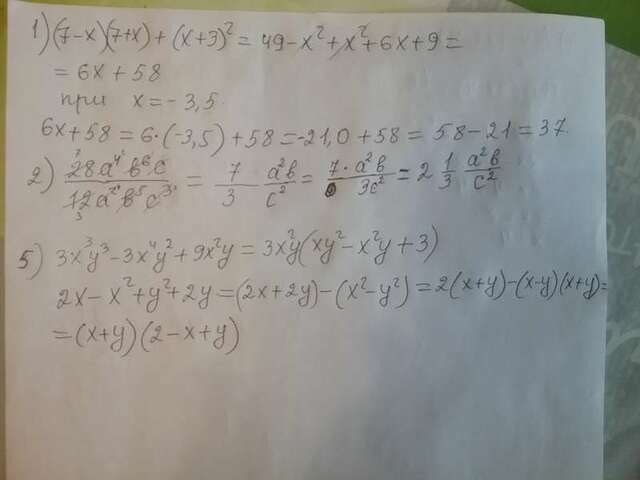 1) (7-x)(7+x) + (x+3)² = 49 - x² + x² + 6x + 9 =
= 6x + 58
при x = -3,5
6x + 58 = 6·(-3,5) + 58 = -21,0 + 58 = 58 - 21 = 37.
2) 28a⁴b⁶c / 12a²b⁵c³ = 7/3 a²b/c² = 7·a²b / 3c² = 2 1/3 a²b/c²
5) 3x³y³ - 3x⁴y² + 9x²y = 3x²y(xy² - x²y + 3)
2x - x² + y² + 2y = (2x + 2y) - (x² - y²) = 2(x+y) - (x-y)(x+y) =
= (x+y)(2 - x + y)